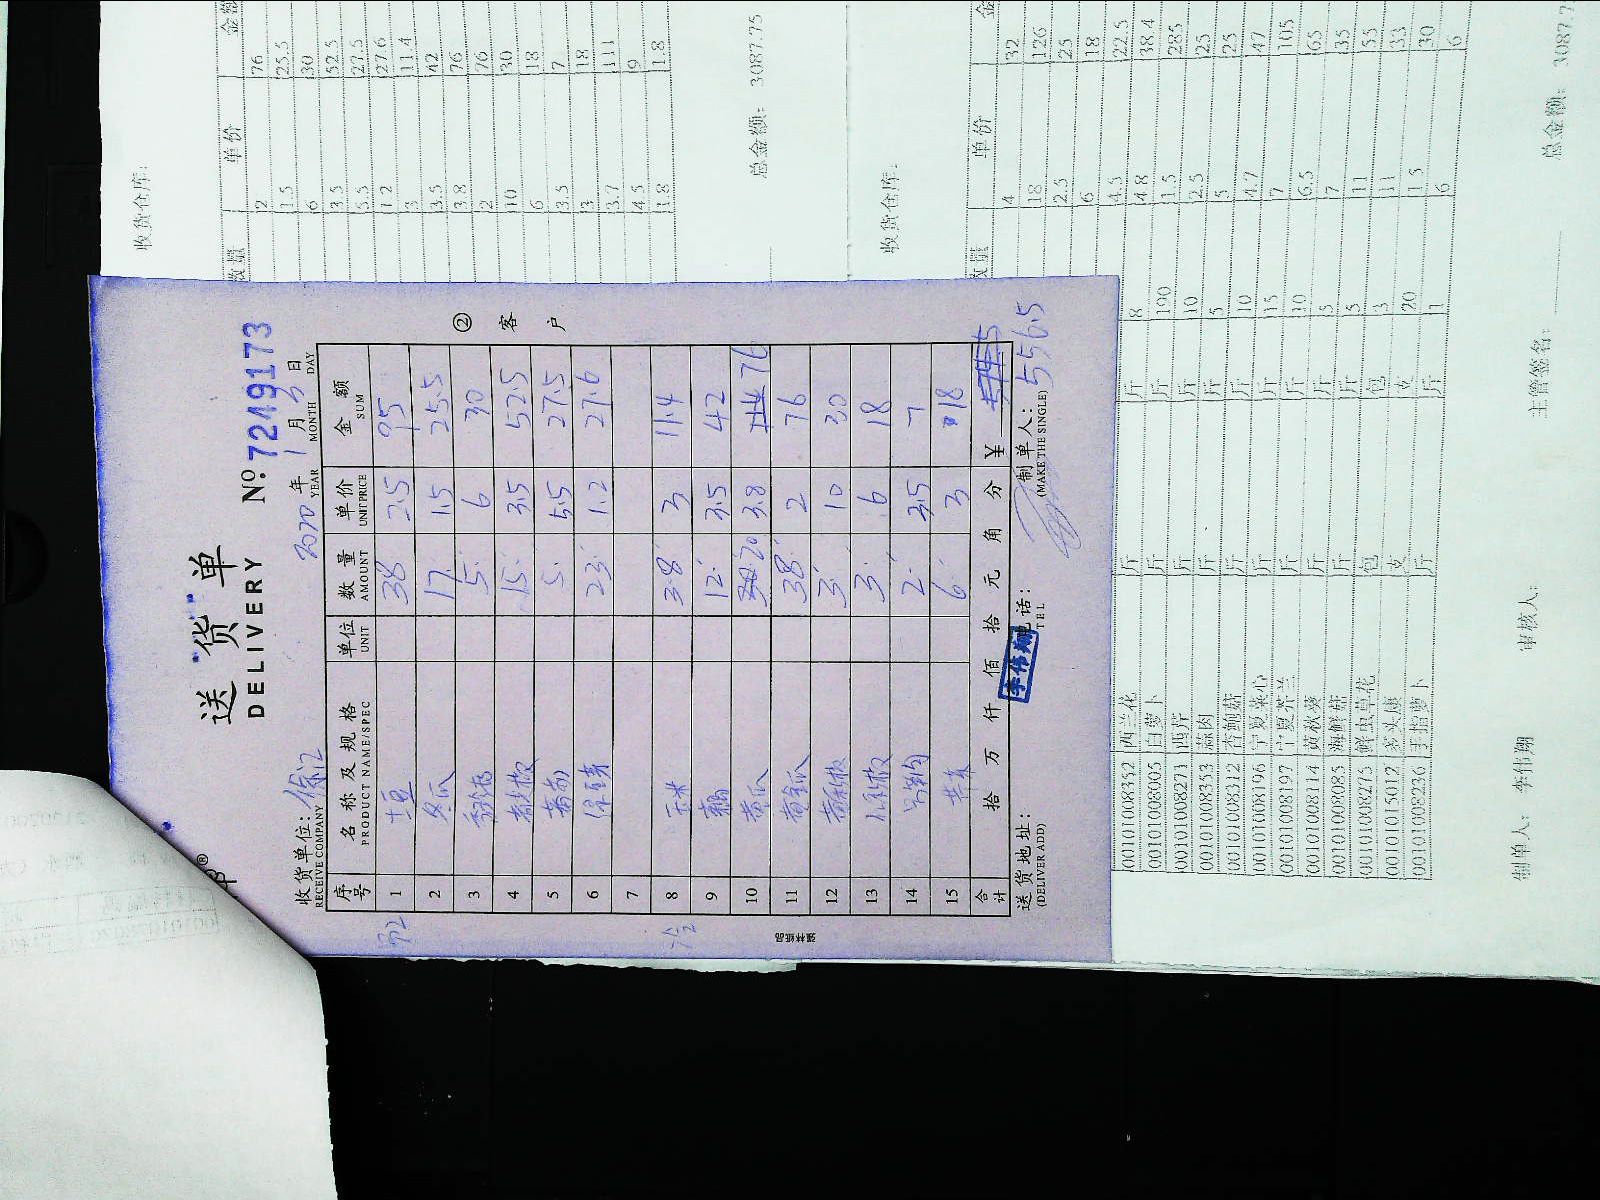 送货单
DELIVERY
No 7249173
收货单位: 徐汇
RECEIVE COMPANY
2020 年 1 月 3 日
YEAR MONTH DAY
序号 名称及规格 单位 数量 单价 金额
PRODUCT NAME/SPEC UNIT AMOUNT UNIT PRICE SUM
1 土豆 38 2.5 95
2 冬瓜 17 1.5 25.5
3 5 6 30
4 15 3.5 52.5
5 5 5.5 27.5
6 23 1.2 27.6
7
8 玉米 3.8 3 11.4
9 12 3.5 42
10 黄瓜 20 3.8 76
11 38 2 76
12 3 10 30
13 3 6 18
14 2 3.5 7
15 6 3 18
合计 拾 万 仟 佰 拾 元 角 分 ¥
556.5
送货地址:
(DELIVER ADD)
电话:
TEL
制单人:
(MAKE THE SINGLE)
李伟翔
② 客户
收货仓库:
数量 单价 金额
2 76
1.5 25.5
6 30
3.5 52.5
5.5 27.5
1.2 27.6
3 11.4
3.5 42
3.8 76
2 76
10 30
6 18
3.5 7
3 18
3.7 111
4.5 9
1.8 1.8
总金额: 3087.75
收货仓库:
数量 单价 金额
4 32
18 126
2.5 25
6 18
4.5 22.5
001010108352 西兰花 斤 斤 8 4.8 38.4
00101008005 白萝卜 斤 斤 190 1.5 285
00101008271 西芹 斤 斤 10 2.5 25
00101008353 蒜肉 斤 斤 5 5 25
00101008312 杏鲍菇 斤 斤 10 4.7 47
00101008196 宁夏菜心 斤 斤 15 7 105
00101008197 宁夏芥兰 斤 斤 10 6.5 65
00101008114 黄秋葵 斤 斤 5 7 35
00101008085 海鲜菇 斤 斤 5 11 55
00101008275 鲜虫草花 包 包 3 11 33
00101015012 支 支 20 1.5 30
00101008236 手指萝卜 斤 斤 1 6 6
制单人: 李伟翔 审核人: 主管签名: 总金额: 3087.7